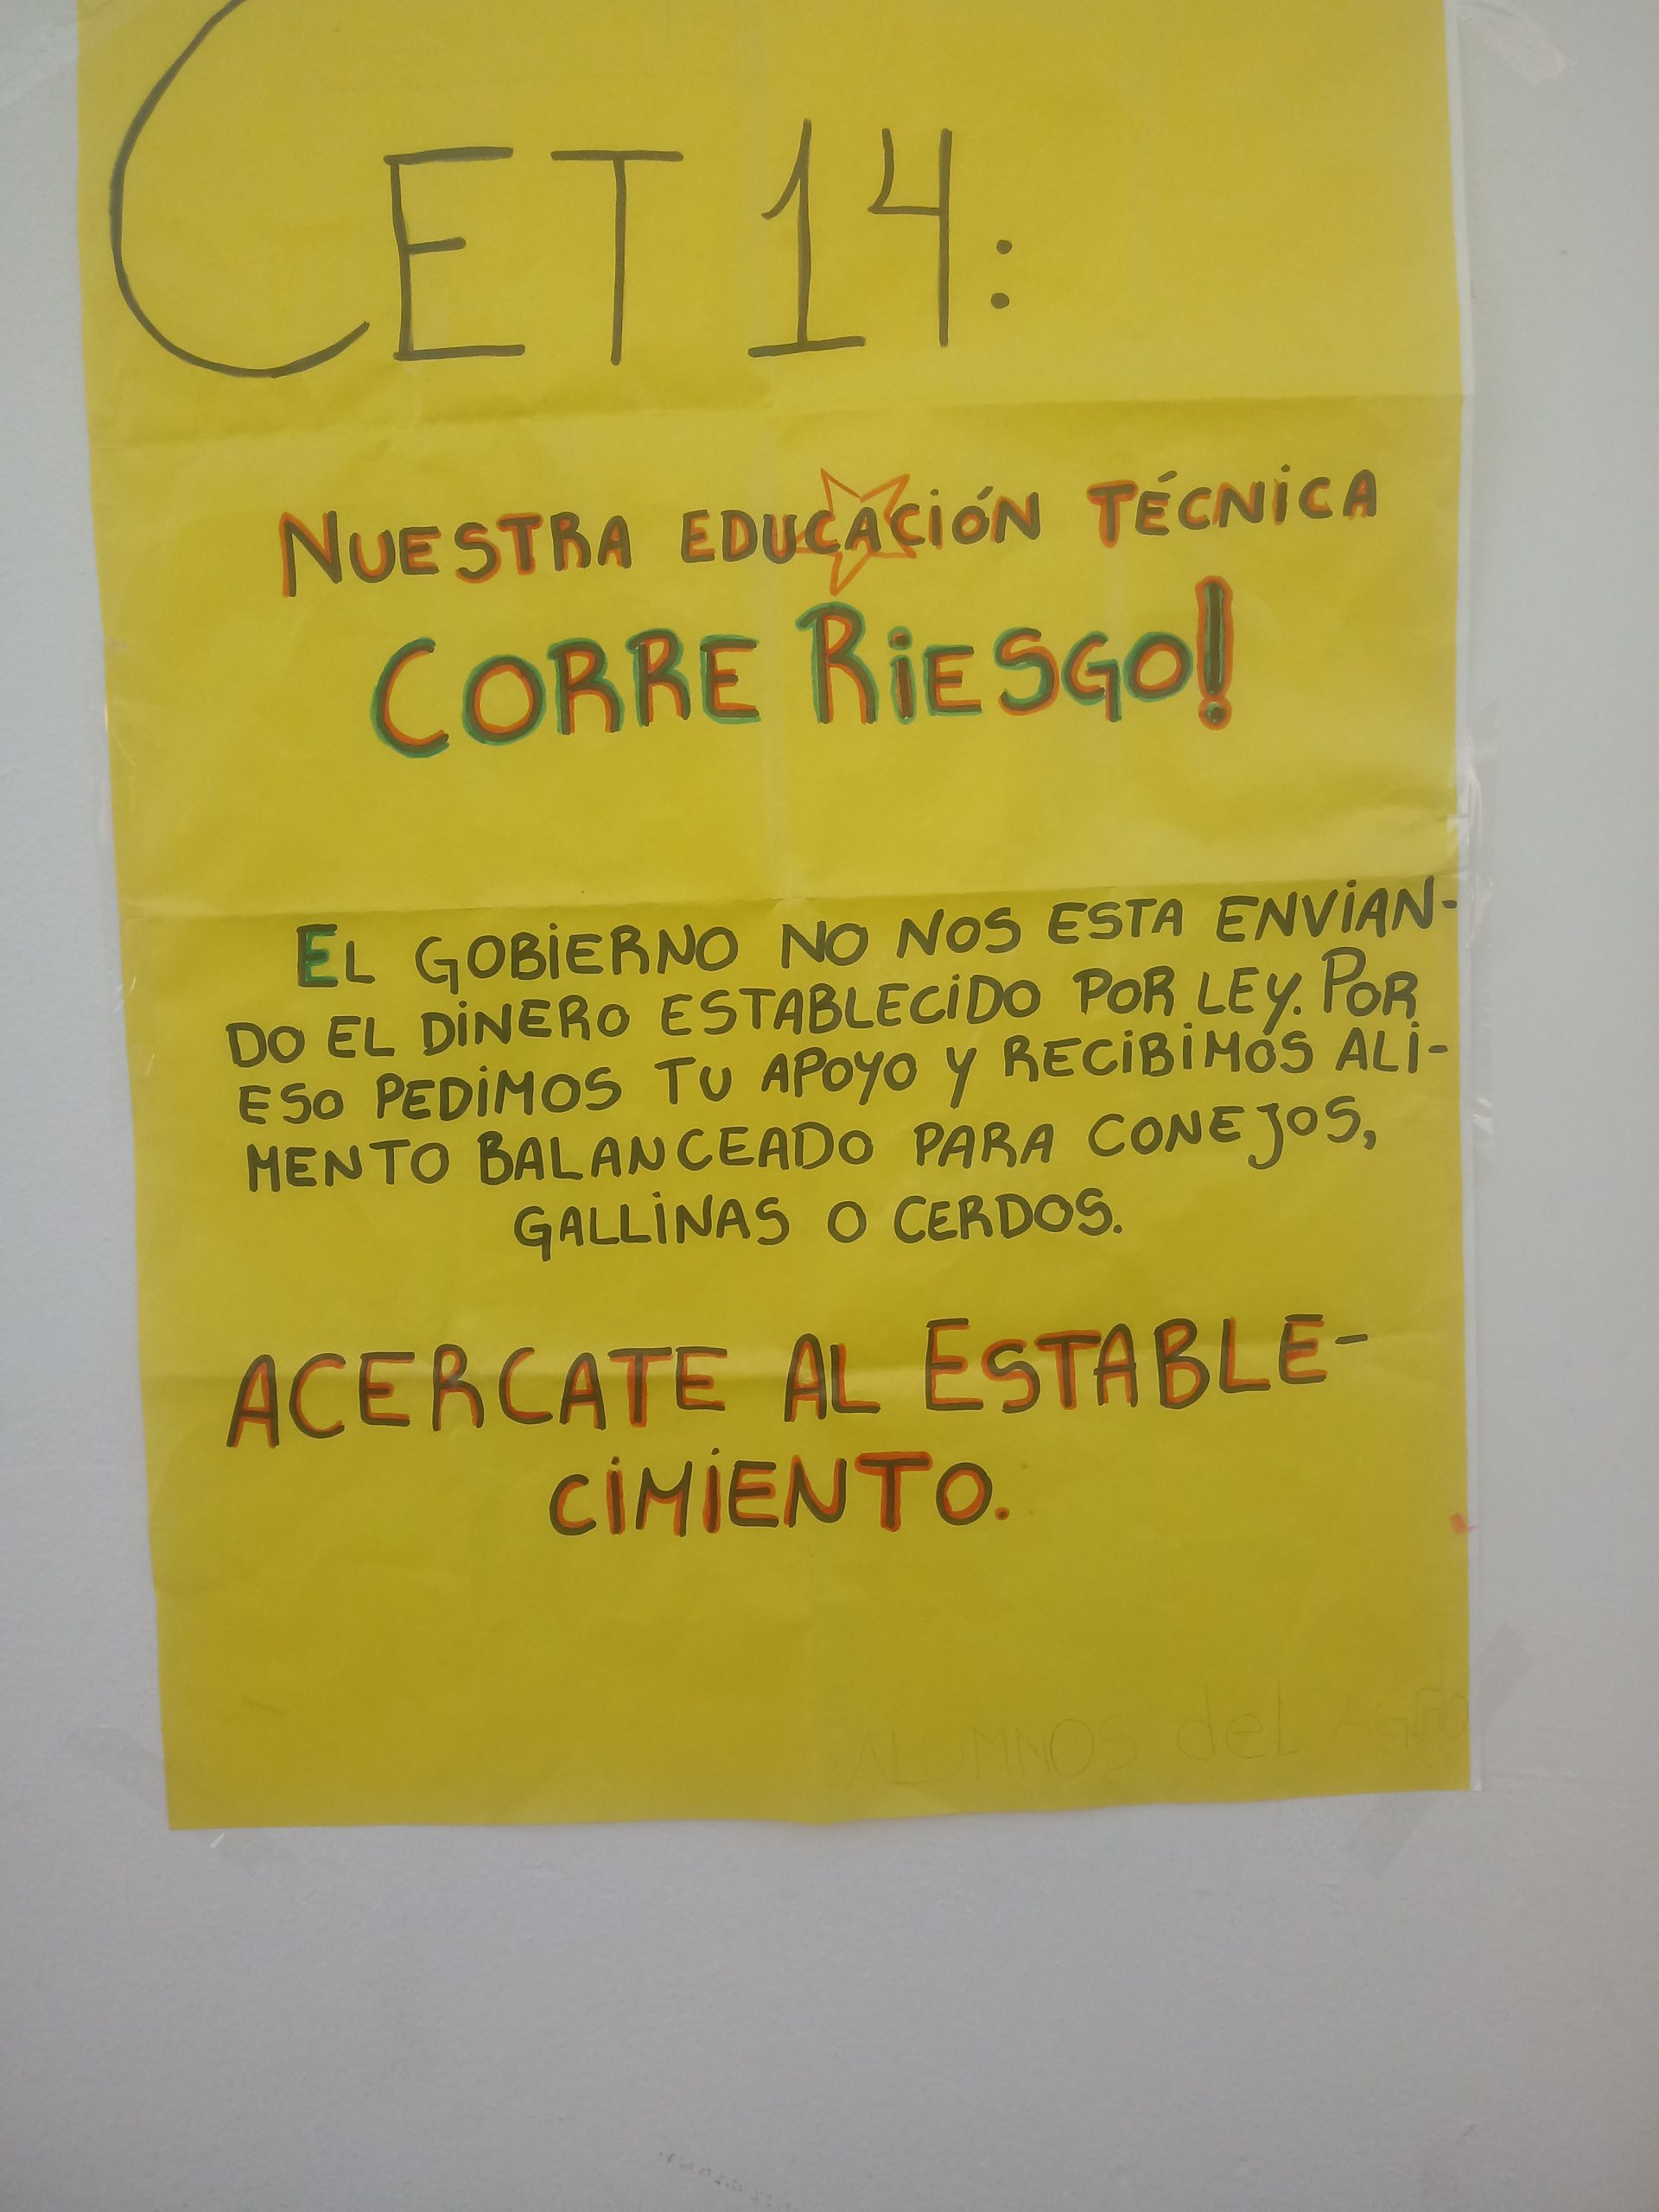 CET 14:
NUESTRA EDUCACIÓN TÉCNICA
CORRE RIESGO!
EL GOBIERNO NO NOS ESTA ENVIAN-
DO EL DINERO ESTABLECIDO POR LEY. POR
ESO PEDIMOS TU APOYO Y RECIBIMOS ALI-
MENTO BALANCEADO PARA CONEJOS,
GALLINAS O CERDOS.
ACERCATE AL ESTABLE-
CIMIENTO.
ALUMNOS del AGRO